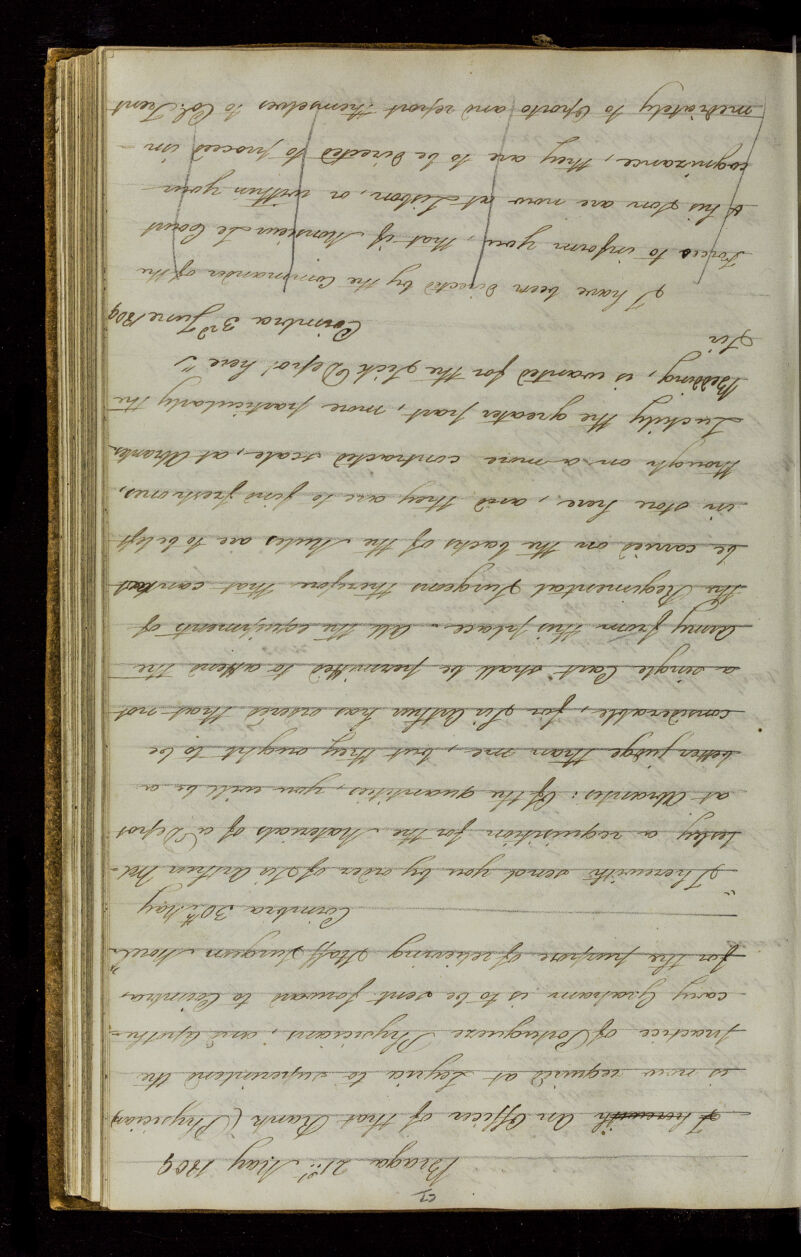 57
Braga 21st May 1809
I herewith An Officer of that Rank (Physician)
is now required at Leyria to superintend the
Practice of Portugueze Physicians, and Apothe-
cary Graham is to be sent forward to Coimbra,
for the purpose of relieving Staff Surgeon More"
Coimbra 30th May
" I herewith send you by order of Sir Arthur Wel-
lesley a requisition for the Materials of a Depot
at Abrantes: Of the quantities, you will be a
better judge than me, but they ought to be
considerable, for Sir Arthur has ordered that not
a single Cart shall be permitted to attend the
Army from this place. All the equipments of
the Regimental Surgeons therefore that can not
be carried on the backs of the Mules are to be left
in store here, and they are to find fresh ones,
though on a more contracted scale, at Abrantes.
Luckily the greater part, more particularly the
Bedding, is wanted for the Sick Depot here"
Sir
Coimbra 3rd June 1809
I have been directed by the Commander of the
Forces to inform you, that if Monsieur Le Count
& his Son are now at Lisbon, or within your
cognizance, they are to be directed to proceed im-
mediately to Oporto and report themselves to Col: Trent